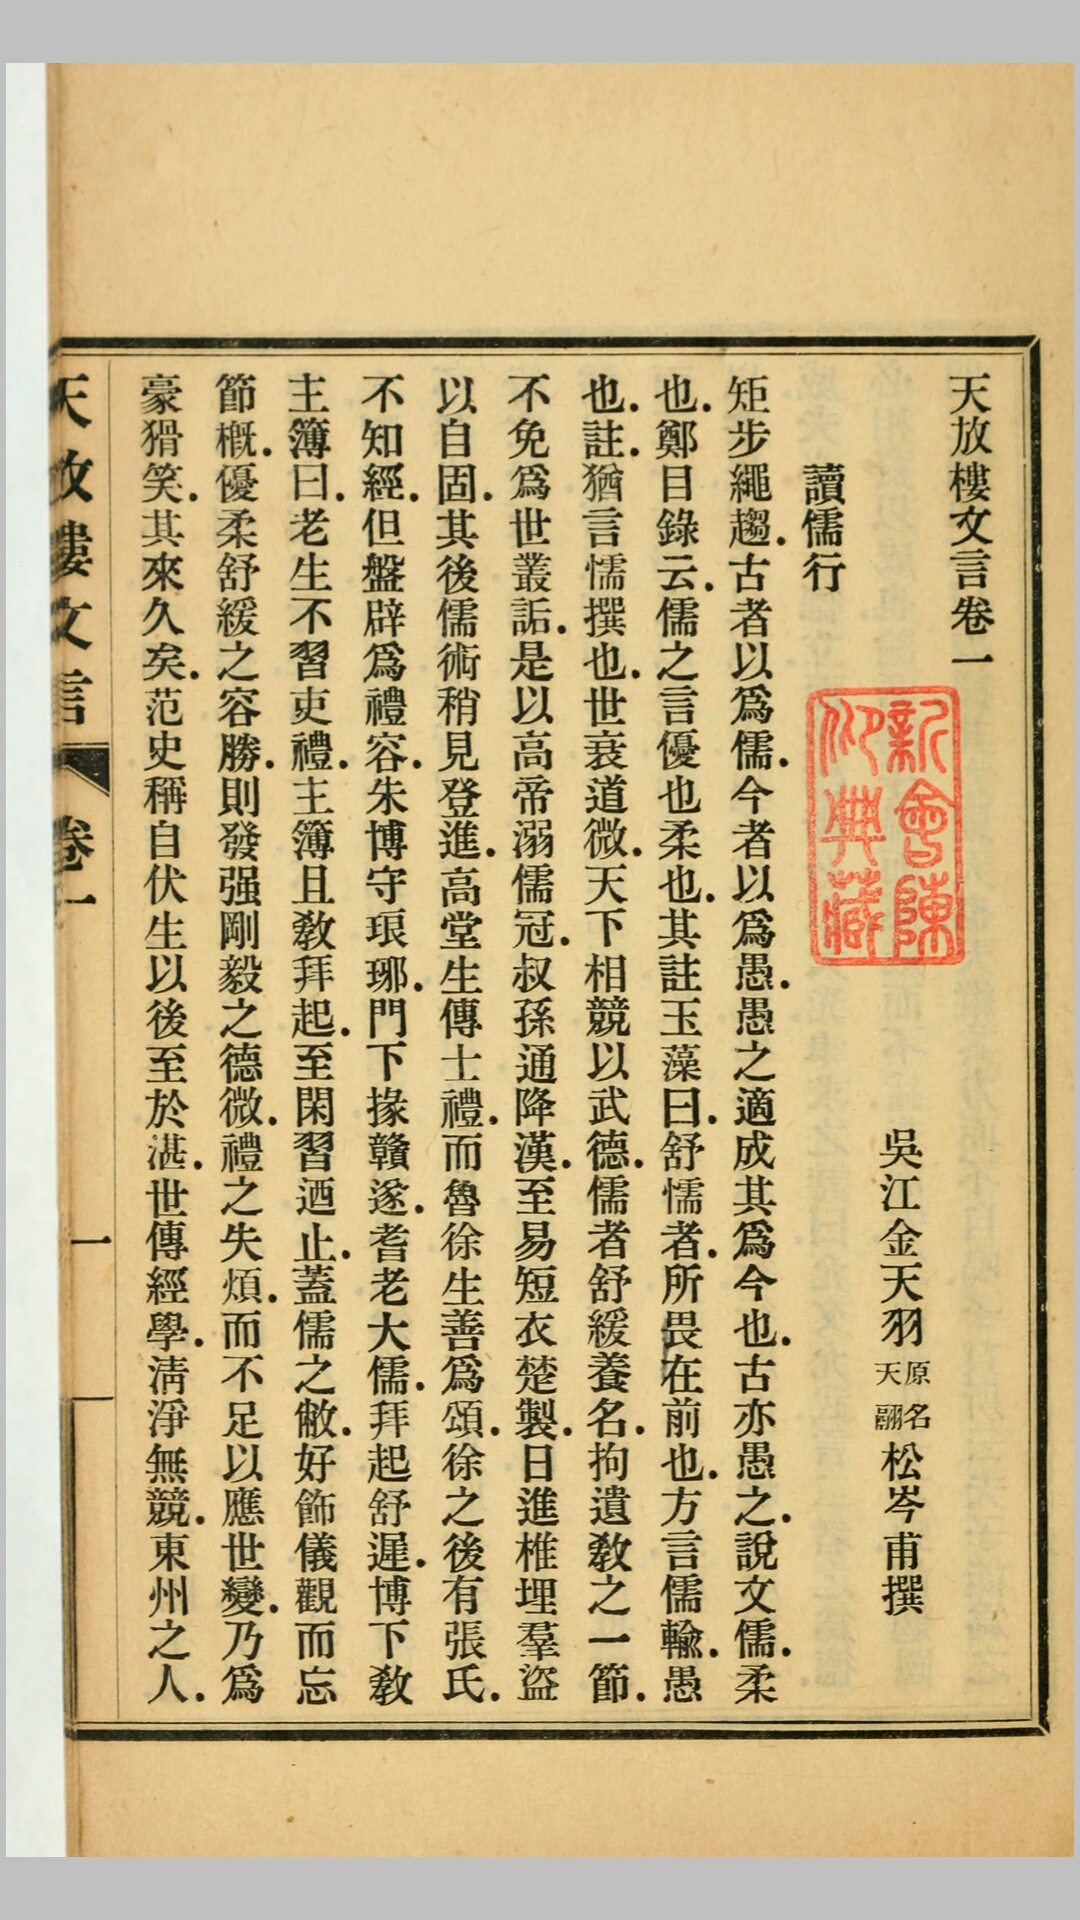 天放樓文言卷一
吳江金天羽原名天翮松岑甫撰
新會陳
仰典藏
讀儒行
矩步繩趨.古者以爲儒.今者以爲愚.愚之適成其爲今也.古亦愚之.說文儒.柔
也.鄭目錄云.儒之言優也柔也.其註玉藻曰.舒懦者.所畏在前也.方言儒輸.愚
也.註.猶言懦撰也.世衰道微.天下相競以武德.儒者舒緩養名.拘遺敎之一節.
不免爲世叢詬.是以高帝溺儒冠.叔孫通降漢.至易短衣楚製.日進椎埋羣盜
以自固.其後儒術稍見登進.高堂生傳士禮.而魯徐生善爲頌.徐之後有張氏.
不知經.但盤辟爲禮容.朱博守琅琊.門下掾贛遂.耆老大儒.拜起舒遲.博下敎
主簿曰.老生不習吏禮.主簿且敎拜起.至閑習迺止.蓋儒之敝.好飾儀觀而忘
節槪.優柔舒緩之容勝.則發强剛毅之德微.禮之失煩.而不足以應世變.乃爲
豪猾笑.其來久矣.范史稱自伏生以後至於湛.世傳經學.淸淨無競.東州之人.
天放樓文言 卷一 一